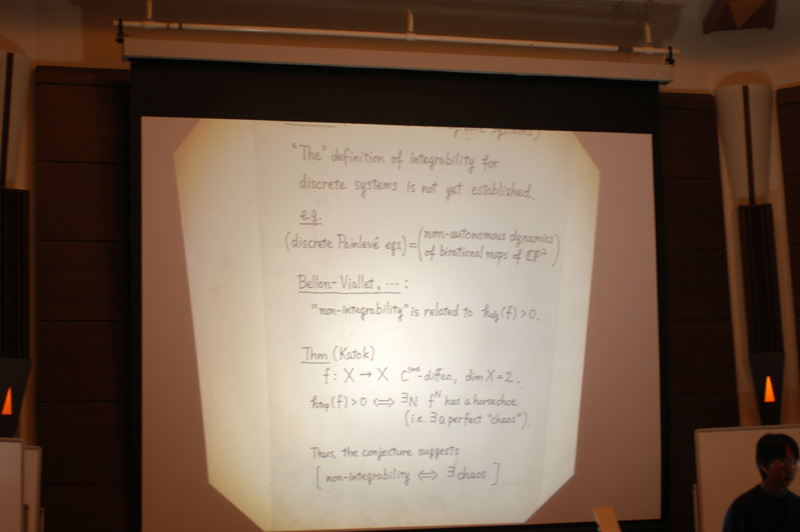 "The" definition of integrability for
discrete systems is not yet established.
e.g.
(discrete Painlevé eqs.) = (non-autonomous dynamics
of birational maps of ℂP²)
Bellon-Viallet, ... :
"non-integrability" is related to h_alg(f) > 0.
Thm (Katok)
f : X → X C^1+α-diffeo, dim X = 2.
h_top(f) > 0 ⟺ ∃N f^N has a horseshoe
(i.e. ∃ a perfect "chaos").
Thus, the conjecture suggests
[non-integrability ⟺ ∃ chaos]